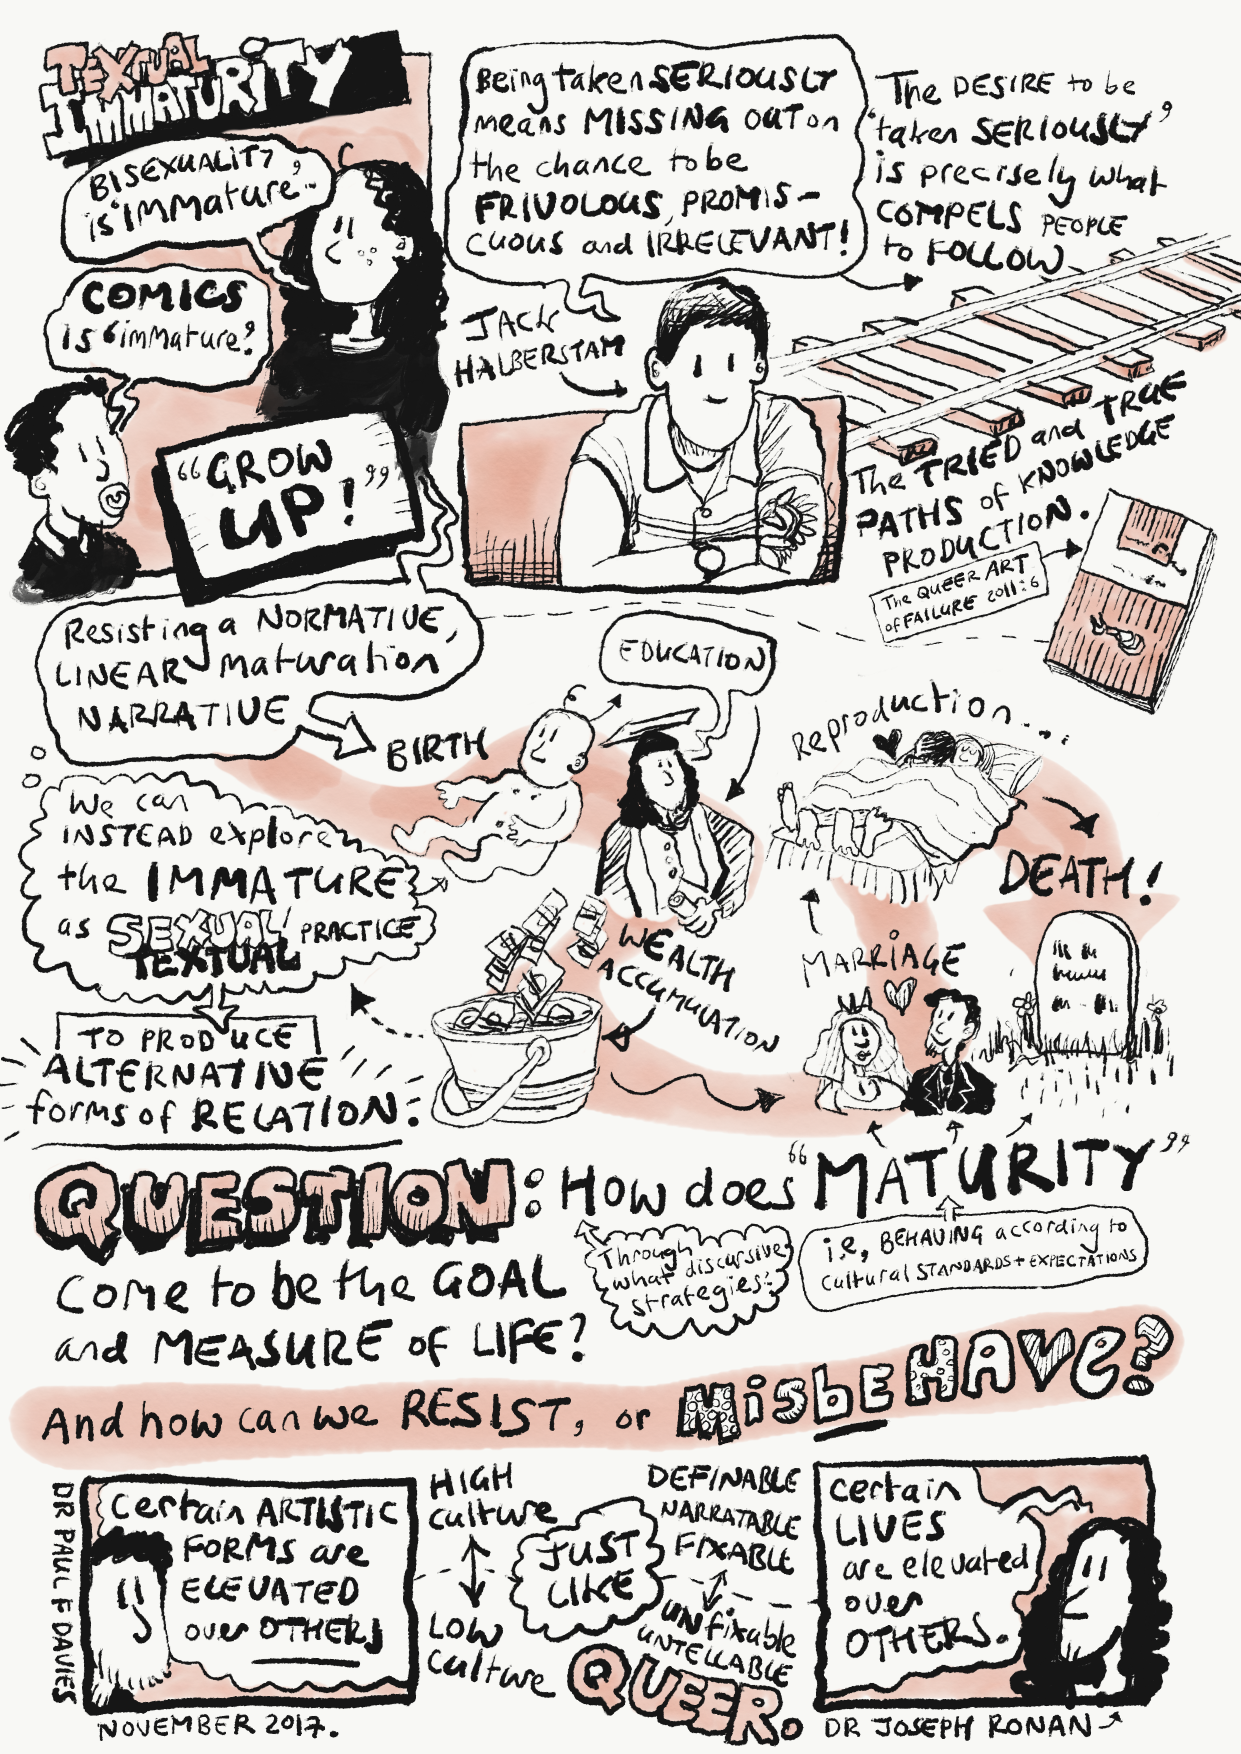 TEXTUAL
IMMATURITY
BISEXUALITY
is 'IMMATURE'...
COMICS
is 'immature'?
"GROW
UP!"
Being taken SERIOUSLY
means MISSING OUT on
the chance to be
FRIVOLOUS, PROMIS-
CUOUS and IRRELEVANT!
JACK
HALBERSTAM
The DESIRE to be
'taken SERIOUSLY'
is precisely what
COMPELS PEOPLE
to FOLLOW
The TRIED and TRUE
PATHS of KNOWLEDGE
PRODUCTION.
The QUEER ART
of FAILURE 2011:6
Resisting a NORMATIVE,
LINEAR maturation
NARRATIVE
BIRTH
EDUCATION
Reproduction...
DEATH!
We can
INSTEAD explore
the IMMATURE?
as SEXUAL PRACTICE
TEXTUAL
WEALTH
ACCUMULATION
MARRIAGE
TO PRODUCE
ALTERNATIVE
forms of RELATION.
QUESTION: How does "MATURITY"
Through
what discursive
strategies?
i.e, BEHAVING according to
Cultural STANDARDS + EXPECTATIONS
Come to be the GOAL
and MEASURE of LIFE?
And how can we RESIST, or MisbeHAVe?
DR PAUL F DAVIES
Certain ARTISTIC
FORMS are
ELEVATED
over OTHERS
NOVEMBER 2017.
HIGH
Culture
LOW
Culture
JUST
LIKE
DEFINABLE
NARRATABLE
FIXABLE
UNfixable
UNTELLABLE
QUEER.
Certain
LIVES
are elevated
over
OTHERS.
DR JOSEPH RONAN